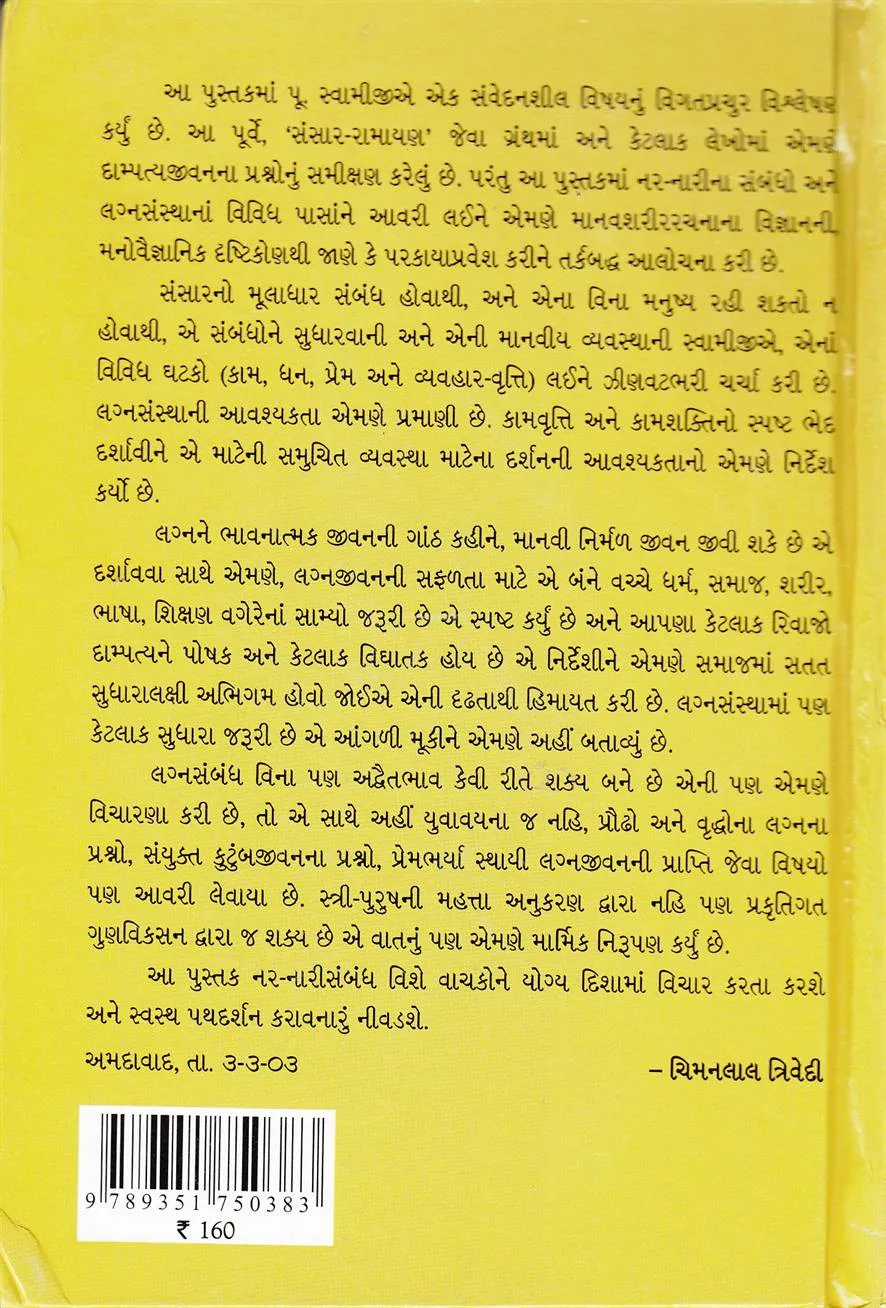 આ પુસ્તકમાં પૂ. સ્વામીજીએ એક સંવેદનશીલ વિષયનું વિગતપ્રચુર વિશ્લેષણ
કર્યું છે. આ પૂર્વે, ‘સંસાર-રામાયણ’ જેવા ગ્રંથમાં અને કેટલાક લેખોમાં એમણે
દામ્પત્યજીવનના પ્રશ્નોનું સમીક્ષણ કરેલું છે. પરંતુ આ પુસ્તકમાં નર-નારીના સંબંધો અને
લગ્નસંસ્થાનાં વિવિધ પાસાંને આવરી લઈને એમણે માનવશરીરરચનાના વિજ્ઞાનની,
મનોવૈજ્ઞાનિક દૃષ્ટિકોણથી જાણે કે પરકાયાપ્રવેશ કરીને તર્કબદ્ધ આલોચના કરી છે.
સંસારનો મૂલાધાર સંબંધ હોવાથી, અને એના વિના મનુષ્ય રહી શકતો ન
હોવાથી, એ સંબંધોને સુધારવાની અને એની માનવીય વ્યવસ્થાની સ્વામીજીએ, એનાં
વિવિધ ઘટકો (કામ, ધન, પ્રેમ અને વ્યવહાર-વૃત્તિ) લઈને ઝીણવટભરી ચર્ચા કરી છે.
લગ્નસંસ્થાની આવશ્યકતા એમણે પ્રમાણી છે. કામવૃત્તિ અને કામશક્તિનો સ્પષ્ટ ભેદ
દર્શાવીને એ માટેની સમુચિત વ્યવસ્થા માટેના દર્શનની આવશ્યકતાનો એમણે નિર્દેશ
કર્યો છે.
લગ્નને ભાવનાત્મક જીવનની ગાંઠ કહીને, માનવી નિર્મળ જીવન જીવી શકે છે એ
દર્શાવવા સાથે એમણે, લગ્નજીવનની સફળતા માટે એ બંને વચ્ચે ધર્મ, સમાજ, શરીર,
ભાષા, શિક્ષણ વગેરેનાં સામ્યો જરૂરી છે એ સ્પષ્ટ કર્યું છે અને આપણા કેટલાક રિવાજો
દામ્પત્યને પોષક અને કેટલાક વિઘાતક હોય છે એ નિર્દેશીને એમણે સમાજમાં સતત
સુધારાલક્ષી અભિગમ હોવો જોઈએ એની દૃઢતાથી હિમાયત કરી છે. લગ્નસંસ્થામાં પણ
કેટલાક સુધારા જરૂરી છે એ આંગળી મૂકીને એમણે અહીં બતાવ્યું છે.
લગ્નસંબંધ વિના પણ અદ્વૈતભાવ કેવી રીતે શક્ય બને છે એની પણ એમણે
વિચારણા કરી છે, તો એ સાથે અહીં યુવાવયના જ નહિ, પ્રૌઢો અને વૃદ્ધોના લગ્નના
પ્રશ્નો, સંયુક્ત કુટુંબજીવનના પ્રશ્નો, પ્રેમભર્યા સ્થાયી લગ્નજીવનની પ્રાપ્તિ જેવા વિષયો
પણ આવરી લેવાયા છે. સ્ત્રી-પુરુષની મહત્તા અનુકરણ દ્વારા નહિ પણ પ્રકૃતિગત
ગુણવિકસન દ્વારા જ શક્ય છે એ વાતનું પણ એમણે માર્મિક નિરૂપણ કર્યું છે.
આ પુસ્તક નર-નારીસંબંધ વિશે વાચકોને યોગ્ય દિશામાં વિચાર કરતા કરશે
અને સ્વસ્થ પથદર્શન કરાવનારું નીવડશે.
અમદાવાદ, તા. ૩-૩-૦૩ – ચિમનલાલ ત્રિવેદી
9 789351 750383
₹ 160